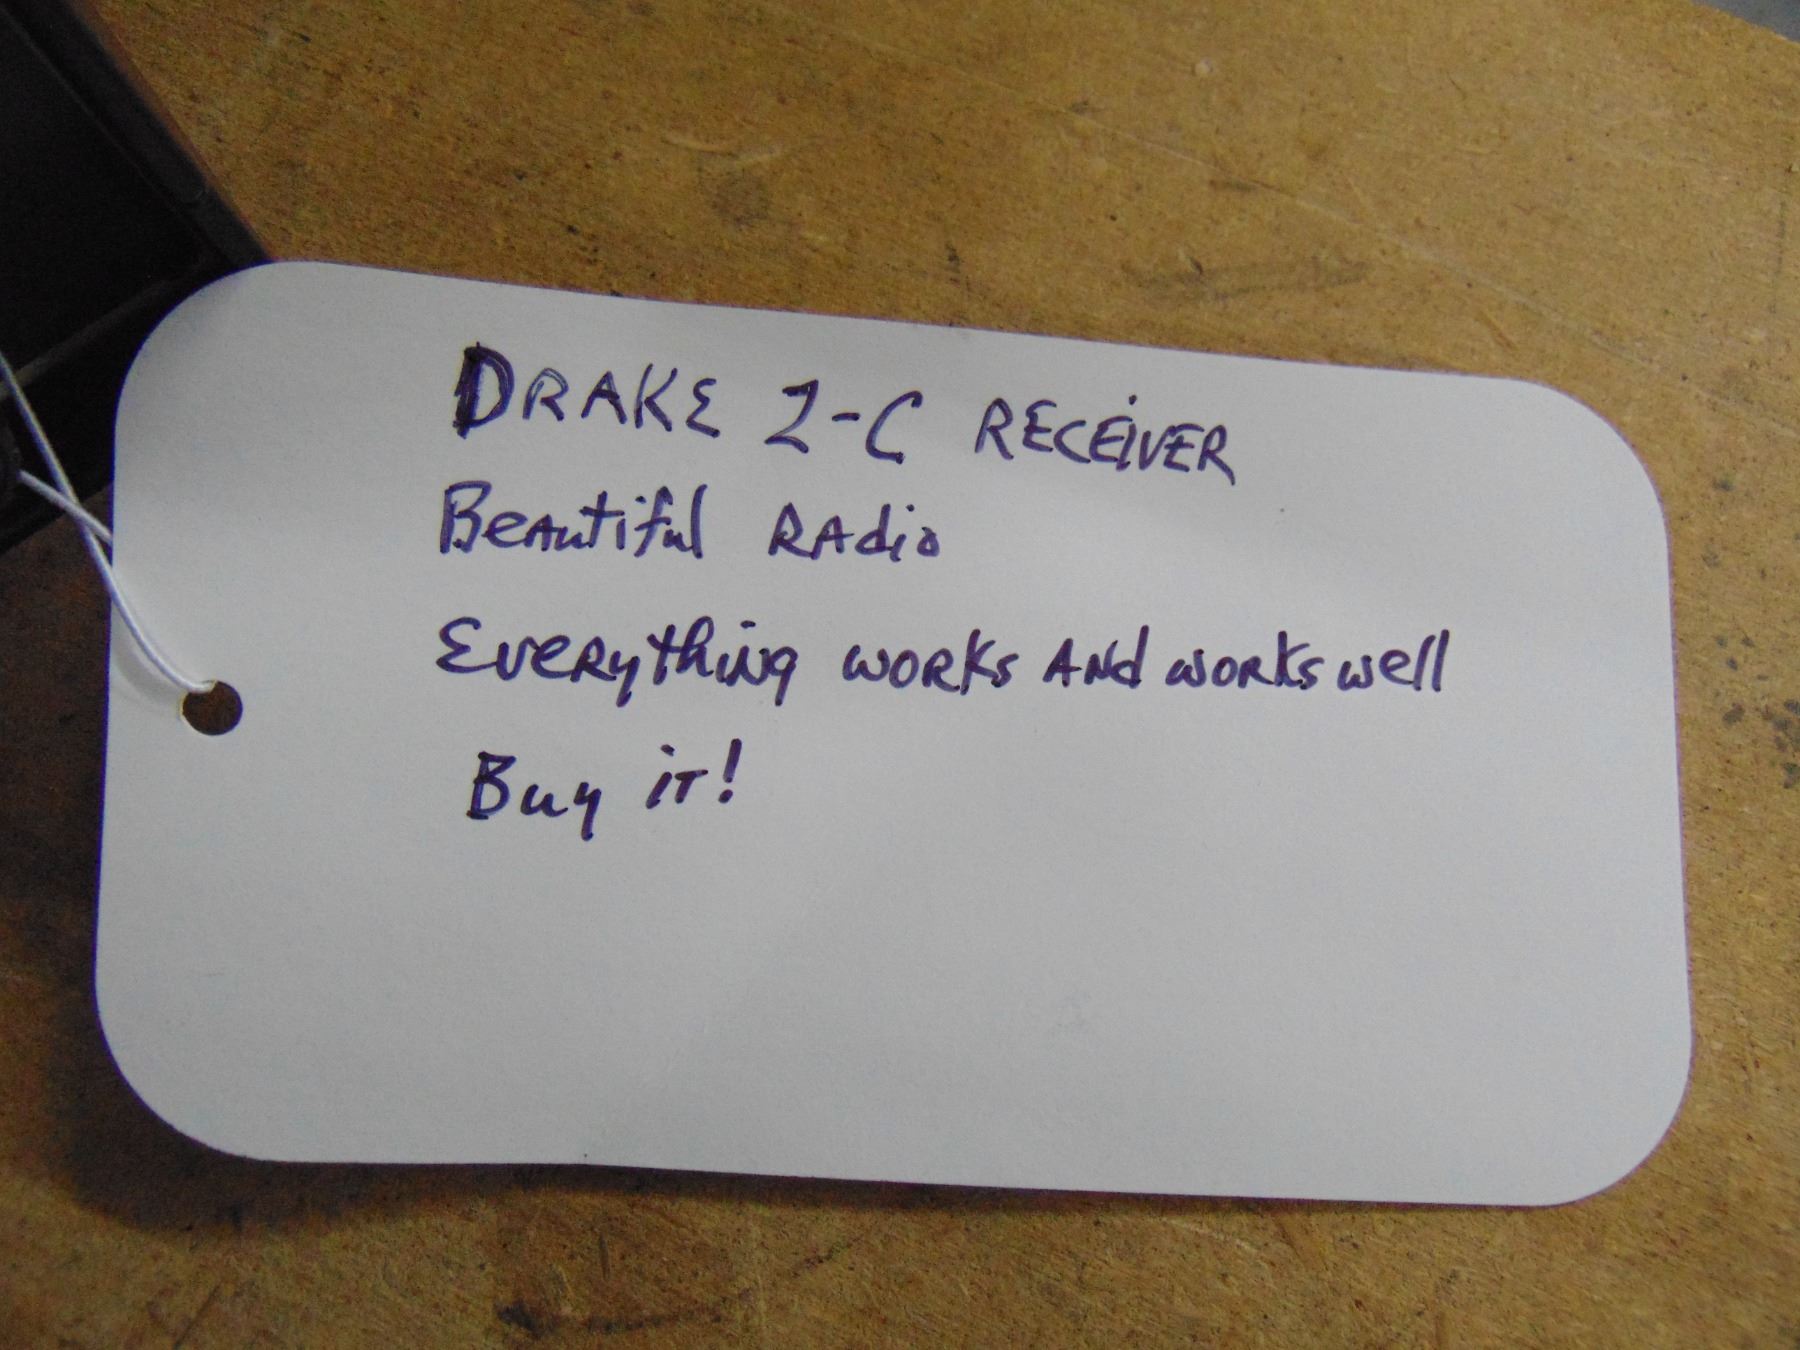 DRAKE 2-C RECEIVER
Beautiful RAdio
EveRything woRKs ANd woRks well
Buy iT!